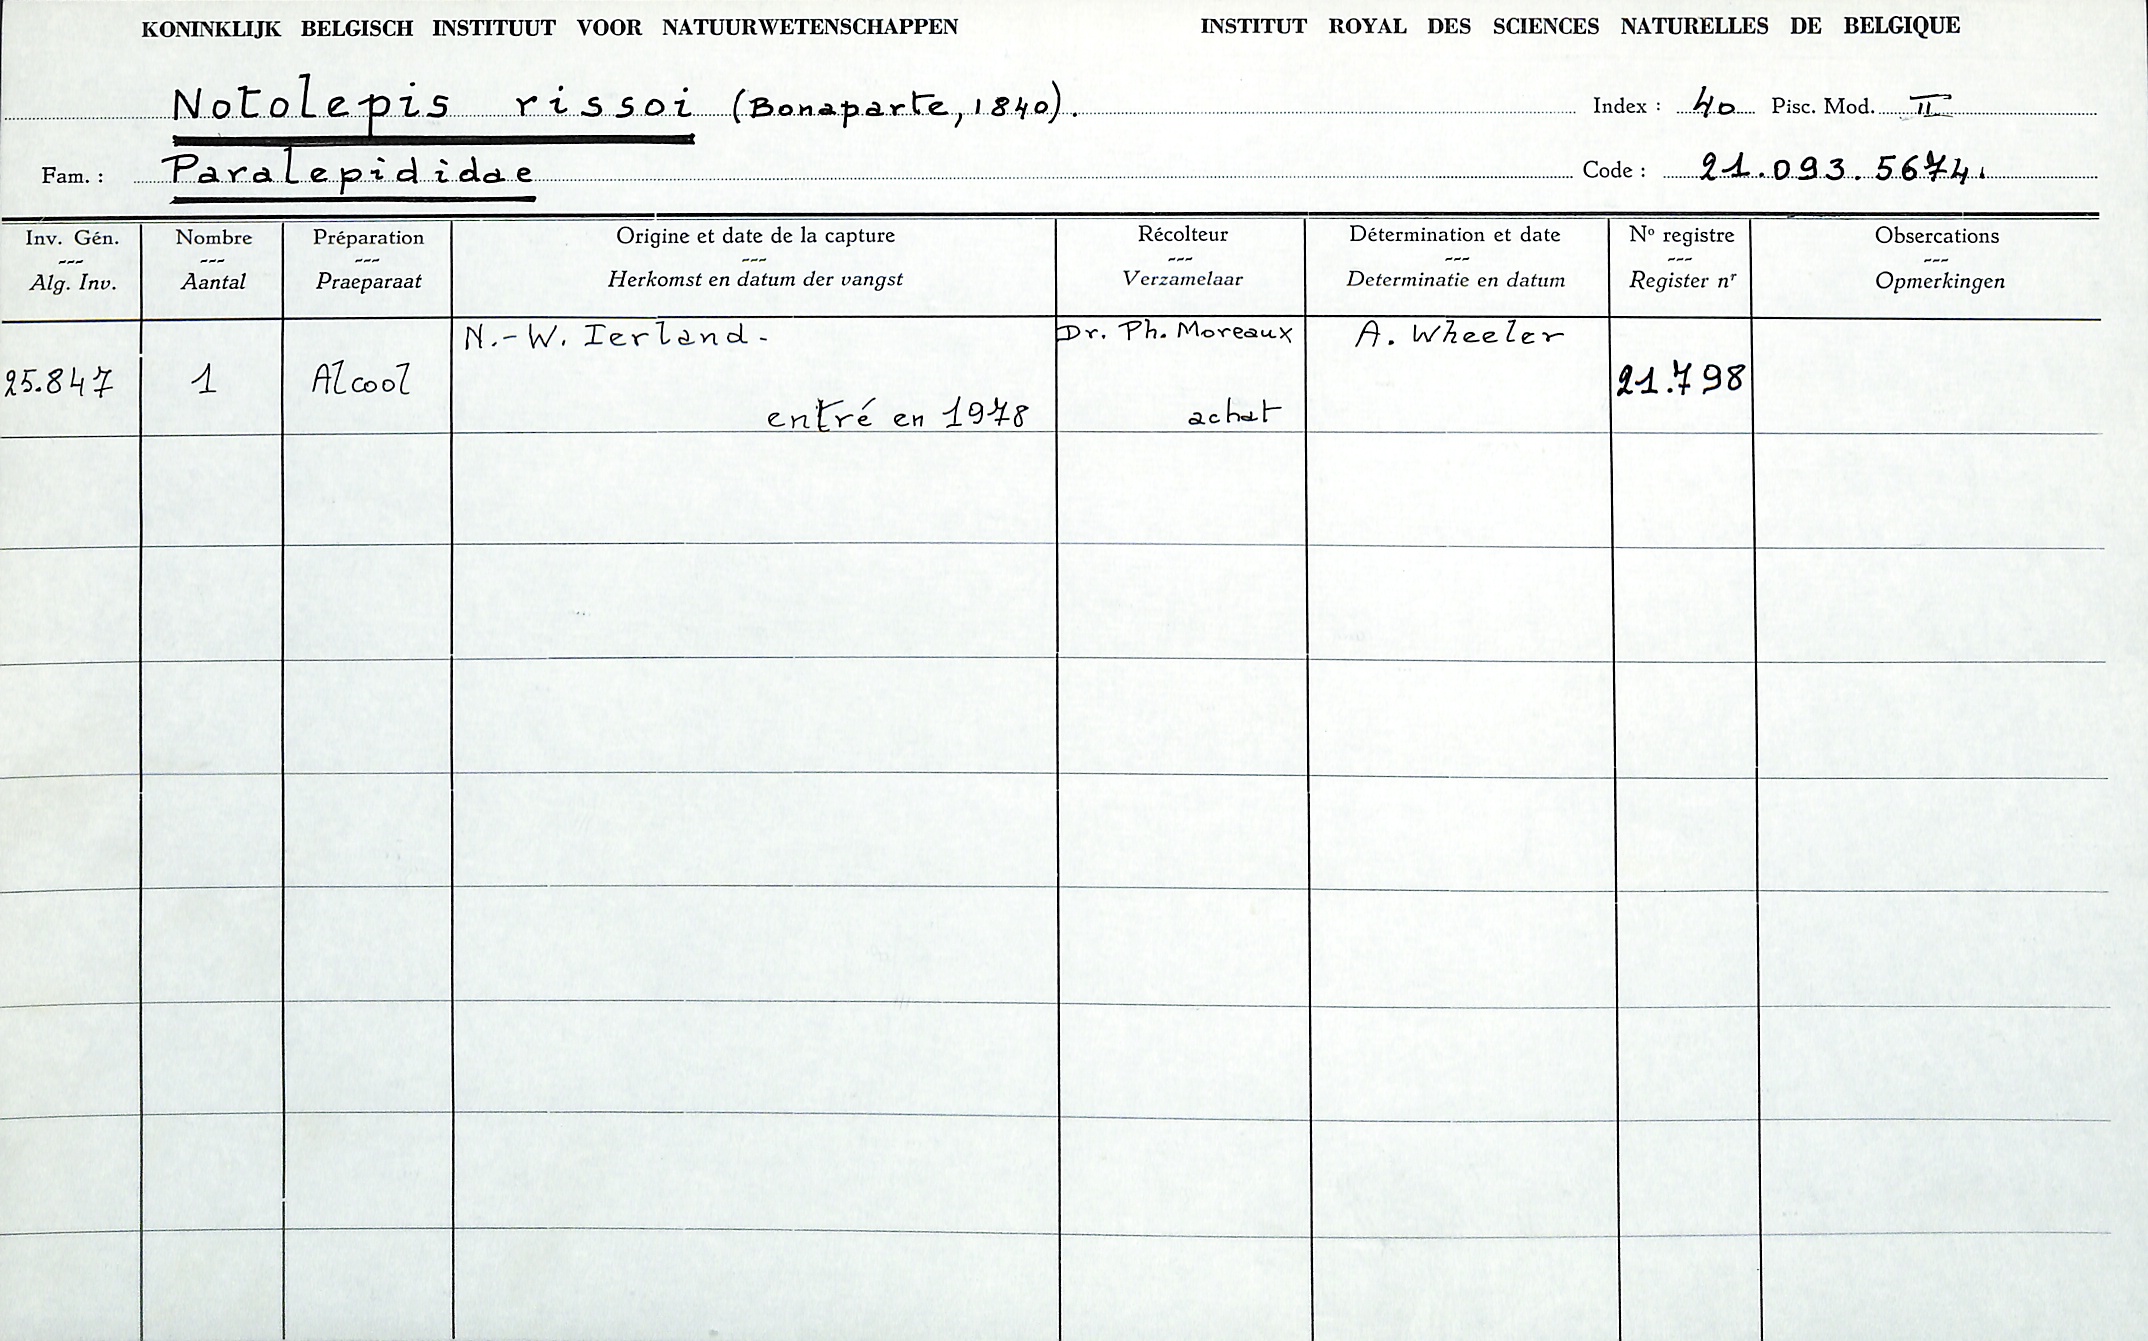 KONINKLIJK BELGISCH INSTITUUT VOOR NATUURWETENSCHAPPEN INSTITUT ROYAL DES SCIENCES NATURELLES DE BELGIQUE
Notolepis rissoi (Bonaparte, 1840). Index : 40 Pisc. Mod. II
Fam. : Paralepididae Code : 21.093.5674.
Inv. Gén. Nombre Préparation Origine et date de la capture Récolteur Détermination et date Nº registre Obsercations
--- --- --- --- --- --- --- ---
Alg. Inv. Aantal Praeparaat Herkomst en datum der vangst Verzamelaar Determinatie en datum Register nʳ Opmerkingen
N.-W. Ierland. Dr. Ph. Moreaux A. Wheeler
25.847 1 Alcool 21.798
entré en 1978 achat